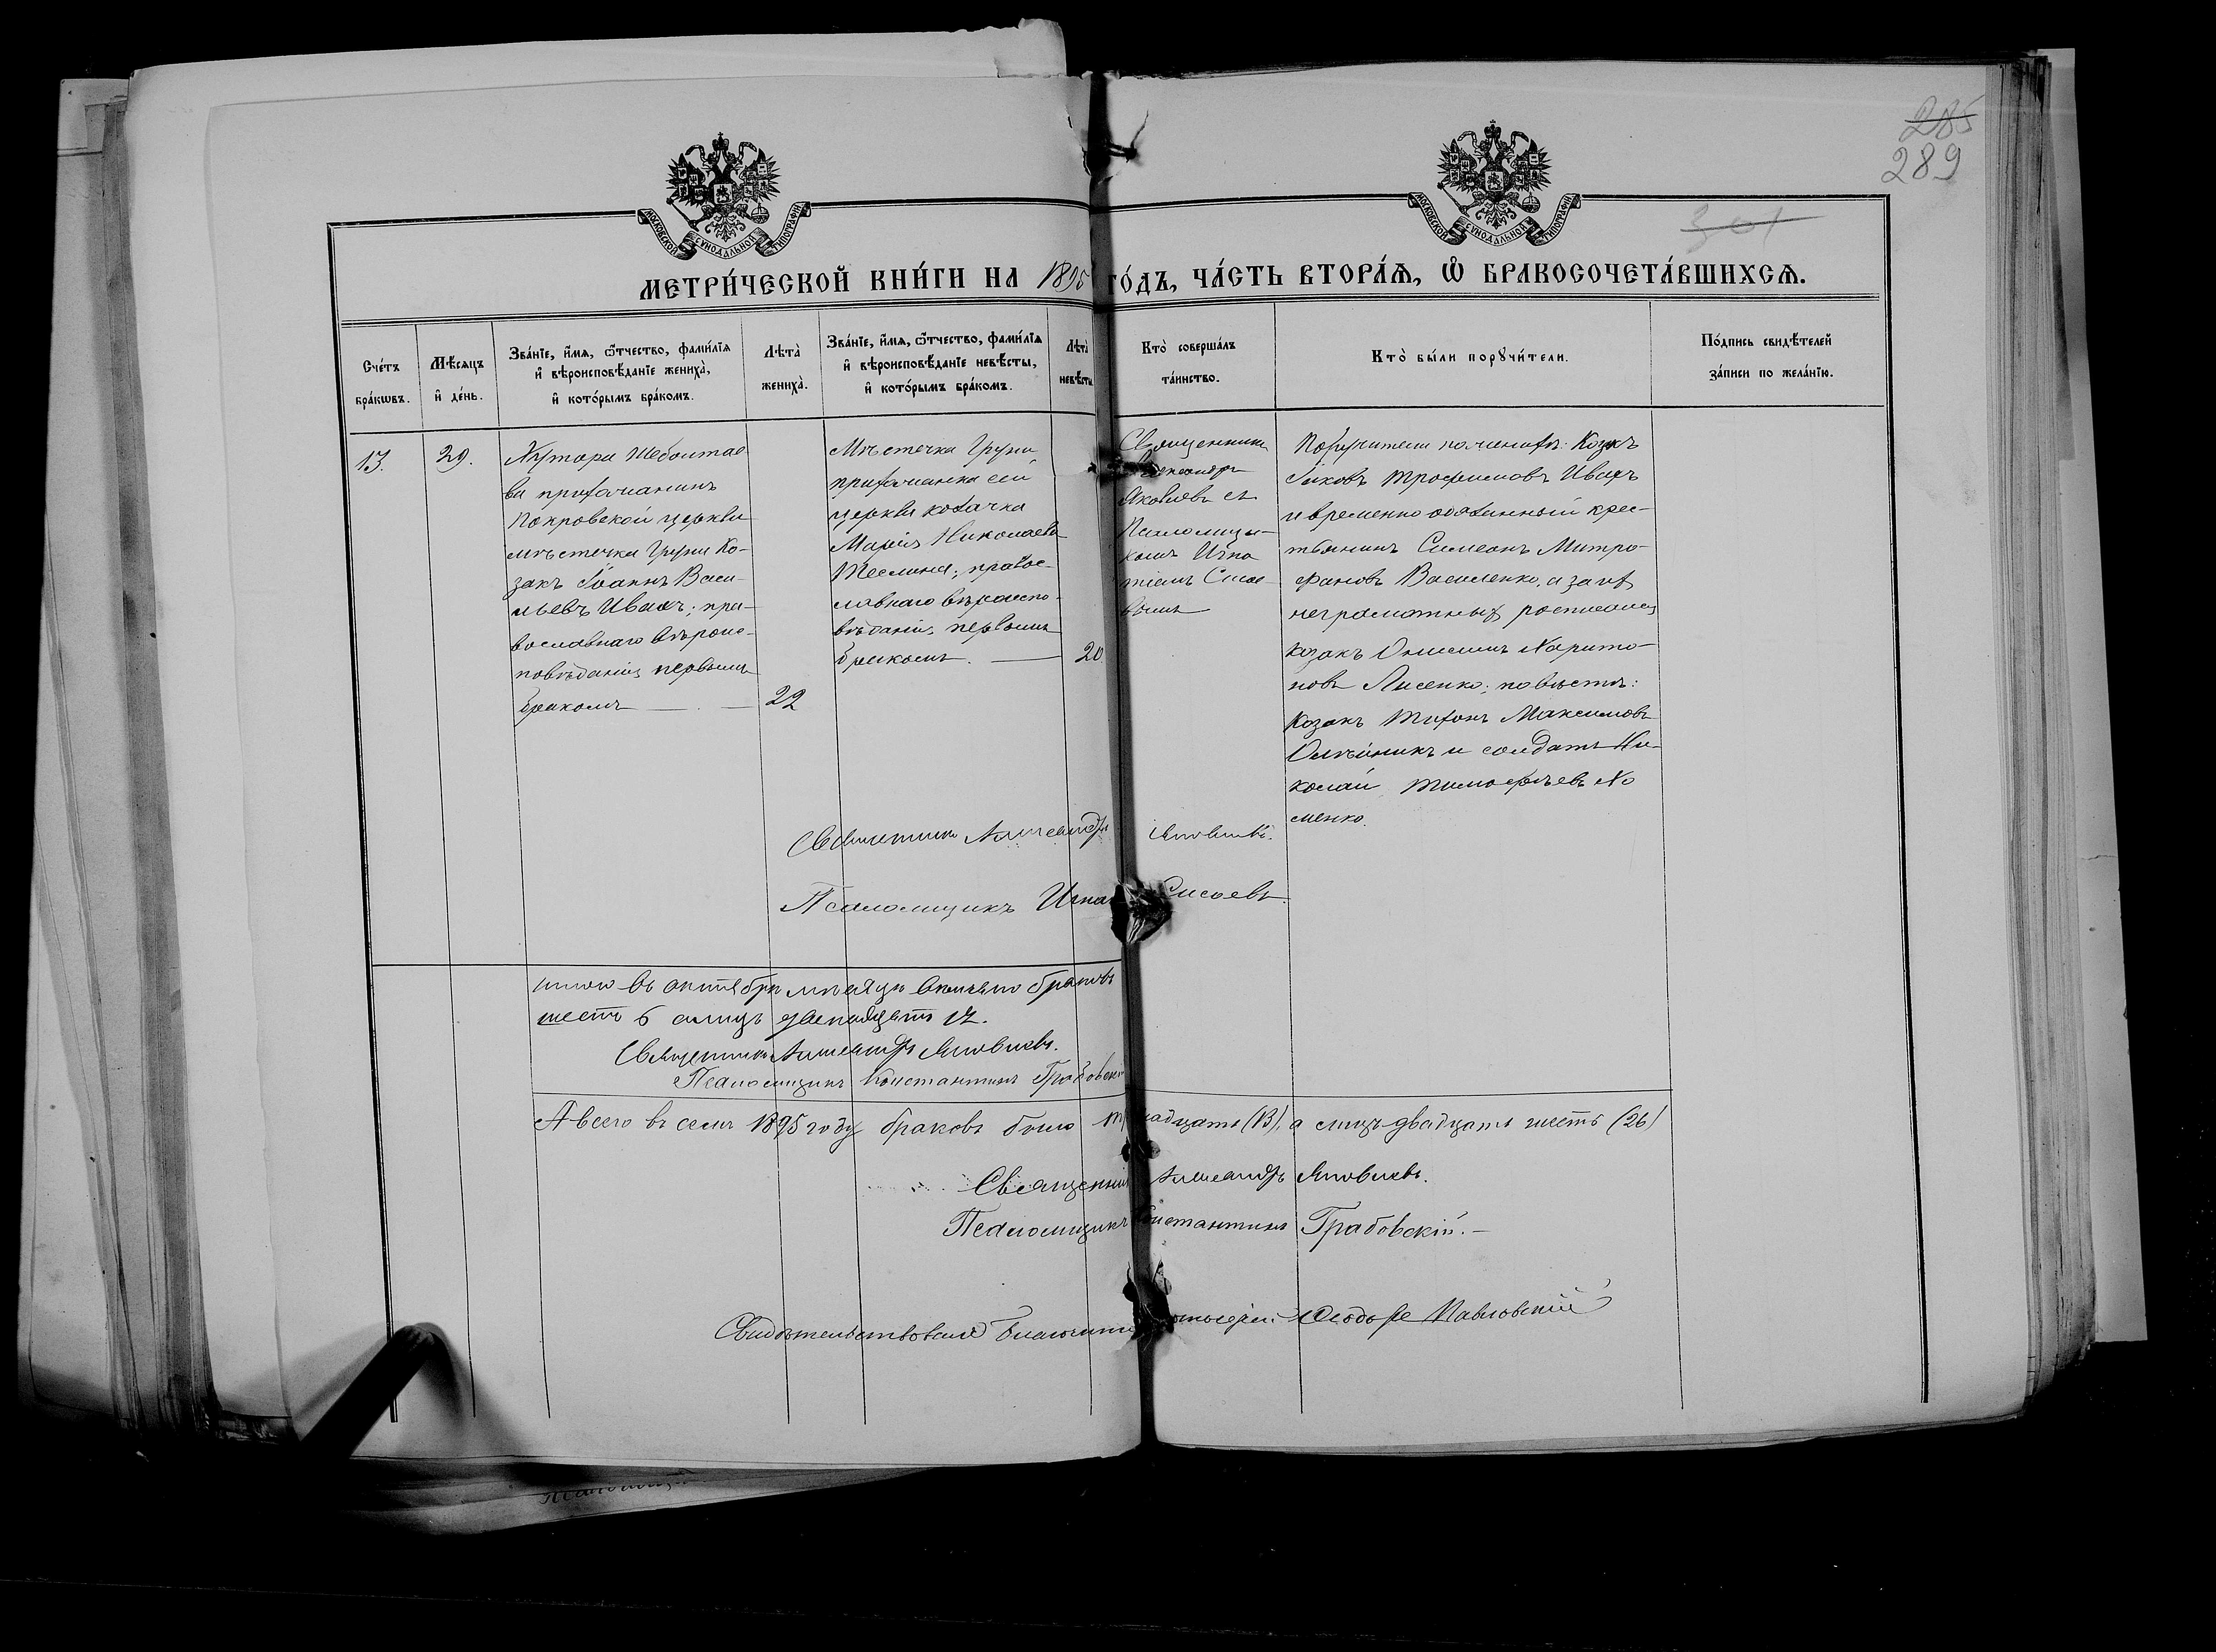 285
289
301
МОСКОВСКОЙ СѴНОДАЛЬНОЙ ТИПОГРАФІИ
МОСКОВСКОЙ СѴНОДАЛЬНОЙ ТИПОГРАФІИ
МЕТРИ́ЧЕСКОЙ КНИ́ГИ НА 1895 ГО́ДЪ, ЧА́СТЬ ВТОРА́Ѧ, Ѡ҆ БРАКОСОЧЕТА́ВШИХСѦ.
Сче́тъ
бра́кѡвъ.
Мѣ́сяцъ
и҆ де́нь.
Зва́нїе, и҆́мѧ, ѻ҆́тчество, фами́лїѧ
и҆ вѣроисповѣ́данїе жениха̀,
и҆ кото́рымъ бра́комъ.
Лѣта̀
жениха̀.
Зва́нїе, и҆́мѧ, ѻ҆́тчество, фами́лїѧ
и҆ вѣроисповѣ́данїе невѣ́сты,
и҆ кото́рымъ бра́комъ.
Лѣта̀
невѣ́сты
Кто̀ соверша́лъ
та́инство.
Кто̀ бы́ли порꙋчи́тели.
По́дпись свидѣ́телей
за́писи по жела́нїю.
13.
29.
Хутора
ва прихожанинъ
Покровской церкви
мѣстечка Груни Ко-
закъ Іоаннъ Васи-
льевъ Ивахъ; пра-
вославнаго вѣроис-
повѣданія, первымъ
бракомъ
22
Мѣстечка Груни
прихожанка сей
церкви козачка
Марія Николаева
Теслина; правос-
лавнаго вѣроиспо-
вѣданія, первымъ
бракомъ.
20
Священникъ
Александръ
Яковлевъ съ
Псаломщи-
комъ Игна
тіемъ Сисое
вымъ
Поручители по женихѣ: Козакъ
Іаковъ Трофимовъ Ивахъ
и временно обязанный крес-
тьянинъ Симеонъ Митро-
фановъ Василенко, а за их
неграматныхъ росписался
козакъ Онисимъ Харито-
новъ Лисенко; по невѣстѣ:
Козакъ Тихонъ Максимовъ
Олѣйникъ и солдатъ Ни-
колай Тимофѣевъ Хо
менко.
Священникъ Александръ Яковлевъ.
Псаломщикъ Игна Сисоевъ.
Итого въ октябрѣ мѣсяцѣ браковъ
шесть 6 а лицъ двенадцать 12.
Священникъ Александръ Яковлевъ.
Псаломщикъ Константинъ Грабовскій
А всего въ семъ 1895 году браковъ было тринадцать (13), а лицъ двадцать шесть (26)
Священникъ Александръ Яковлевъ.
Псаломщикъ Константинъ Грабовскій.
Свидѣтельствовалъ Ѳеодоръ Павловскій